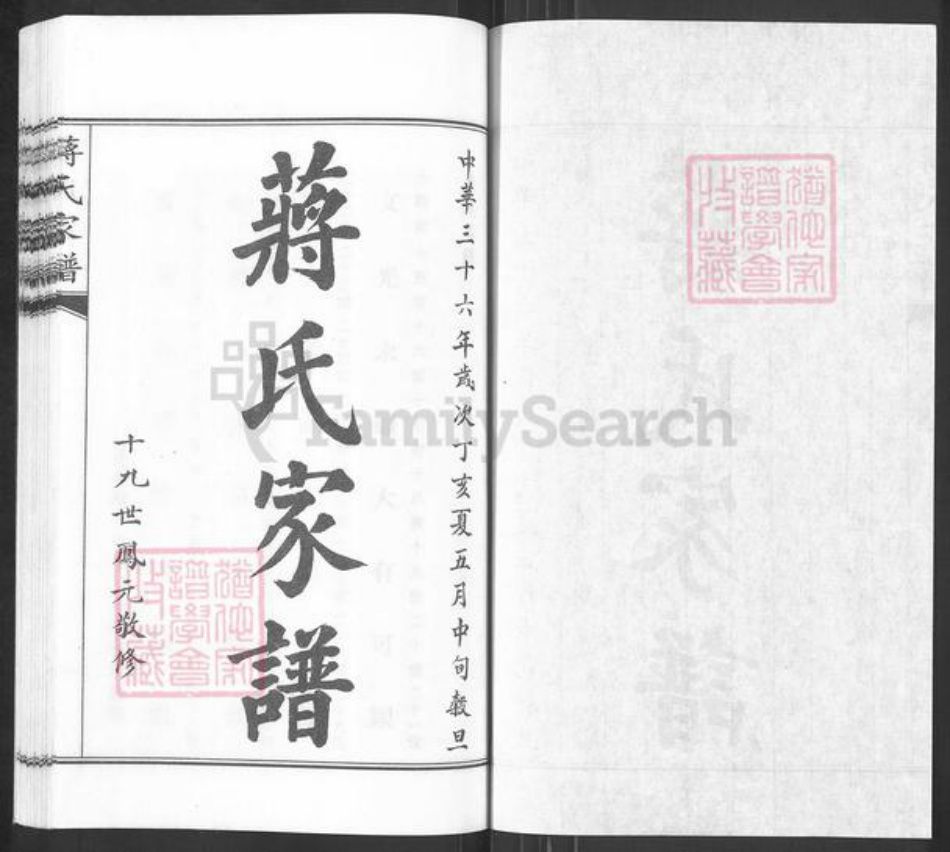 中華三十六年歲次丁亥夏五月中旬穀旦
蔣氏家譜
十九世鳳元敬修
蔣氏家譜
猶他家
譜學會
收藏
猶他家
譜學會
收藏
FamilySearch